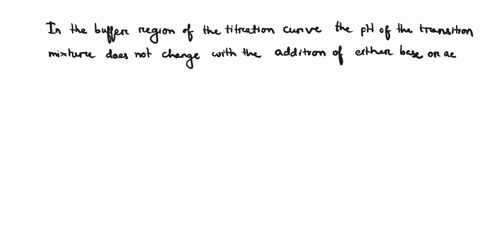 In the buffer region of the titration curve the pH of the transition
mixture does not change with the addition of either base or ac